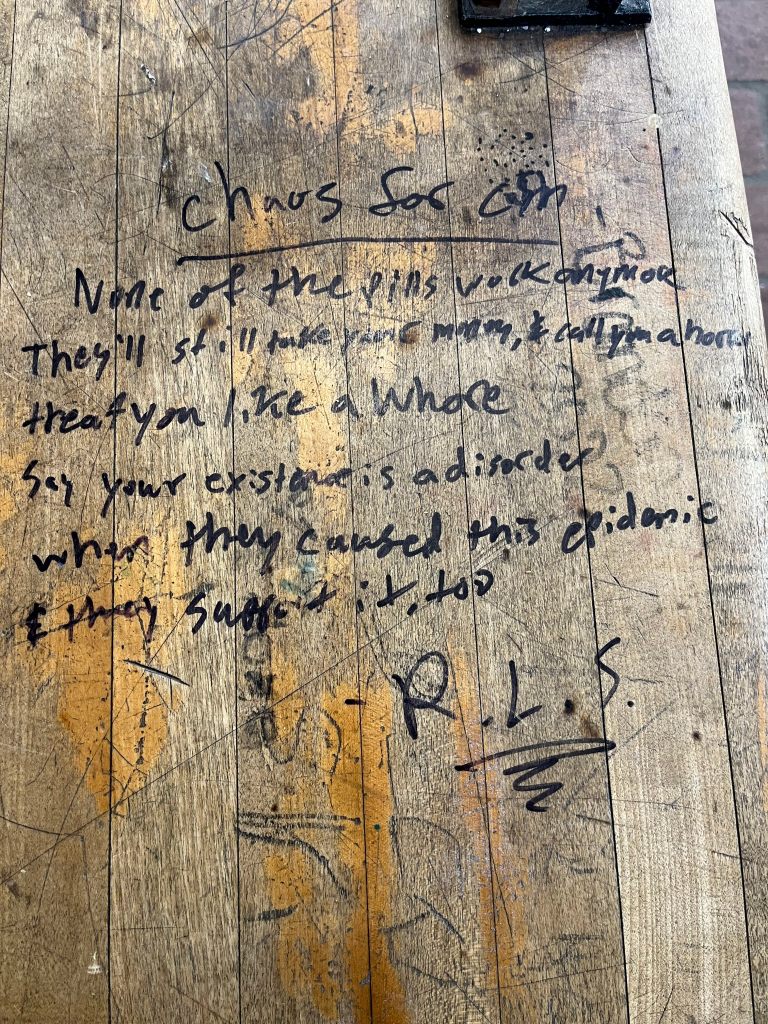 chaos for
None of the pills work anymore
They'll still take your money, & call you a
treat you like a Whore
Say your existence is a disorder
when they caused this epidemic
& they support it, too
- R.L.S.